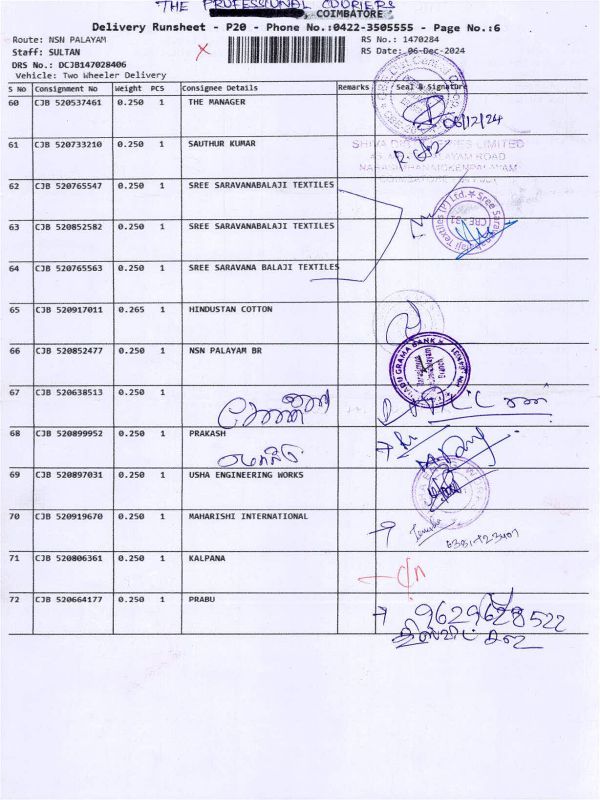 THE PROFESSIONAL COURIERS
COIMBATORE
Delivery Runsheet - P20 - Phone No.:0422-3505555 - Page No.:6
Route: NSN PALAYAM RS No.: 1470284
Staff: SULTAN RS Date: 06-Dec-2024
DRS No.: DCJB147028406
Vehicle: Two Wheeler Delivery
S No Consignment No Weight PCS Consignee Details Remarks Seal & Signature
60 CJB 520537461 0.250 1 THE MANAGER
06/12/24
61 CJB 520733210 0.250 1 SAUTHUR KUMAR
LIMITED
ROAD
62 CJB 520765547 0.250 1 SREE SARAVANABALAJI TEXTILES
63 CJB 520852582 0.250 1 SREE SARAVANABALAJI TEXTILES
64 CJB 520765563 0.250 1 SREE SARAVANA BALAJI TEXTILES
65 CJB 520917011 0.265 1 HINDUSTAN COTTON
66 CJB 520852477 0.250 1 NSN PALAYAM BR
GRAMA BANK
Branch
67 CJB 520638513 0.250 1
68 CJB 520899952 0.250 1 PRAKASH
69 CJB 520897031 0.250 1 USHA ENGINEERING WORKS
70 CJB 520919670 0.250 1 MAHARISHI INTERNATIONAL
71 CJB 520806361 0.250 1 KALPANA
72 CJB 520664177 0.250 1 PRABU
9629628522